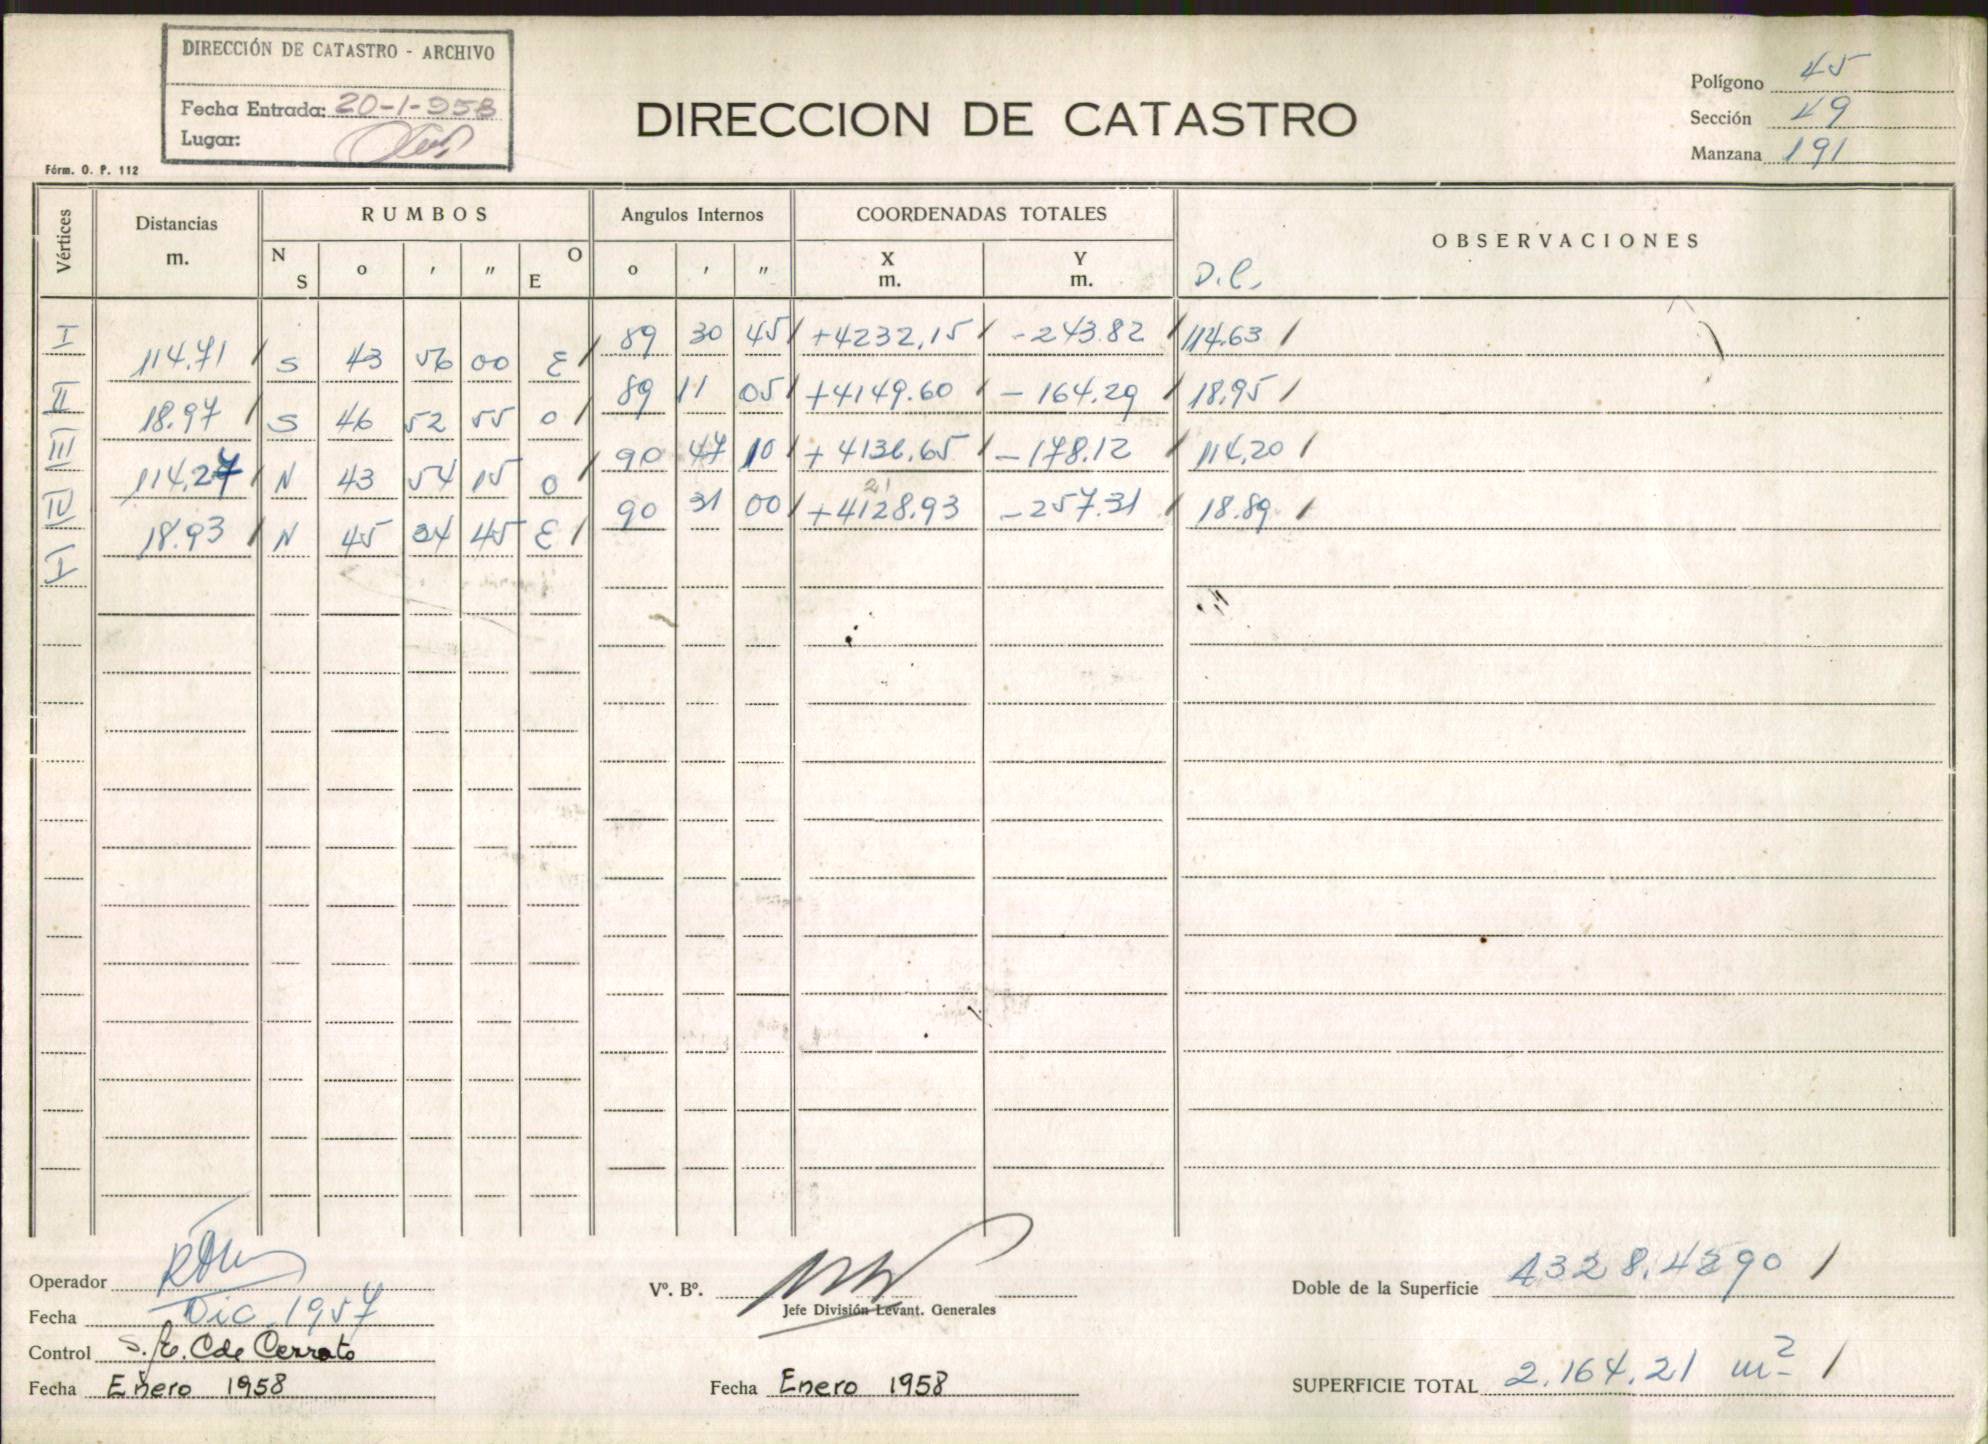 DIRECCIÓN DE CATASTRO - ARCHIVO
Fecha Entrada: 20-1-958
Lugar:
Fórm. O. P. 112
DIRECCION DE CATASTRO
Polígono 45
Sección 49
Manzana 191
Vértices Distancias m. RUMBOS Angulos Internos COORDENADAS TOTALES OBSERVACIONES
N S o ' " O E o ' " X m. Y m. D.C.
I 89 30 45 / +4232,15 / -243.82 / 114.63 /
114.71 / S 43 56 00 E /
II 89 11 05 / +4149.60 / -164.29 / 18.95 /
18.97 / S 46 52 55 O /
III 90 47 10 / +4136.65 / -178.12 / 114,20 /
114.27 / N 43 54 15 O /
21
IV 90 31 00 / +4128.93 -257.31 / 18.89 /
18.93 / N 45 34 45 E /
I
Operador
Fecha Dic. 1957
Control S. E. C de Cerrato
Fecha Enero 1958
Vº. Bº.
Jefe División Levant. Generales
Fecha Enero 1958
Doble de la Superficie 4328.4290 /
SUPERFICIE TOTAL 2.164.21 m² /